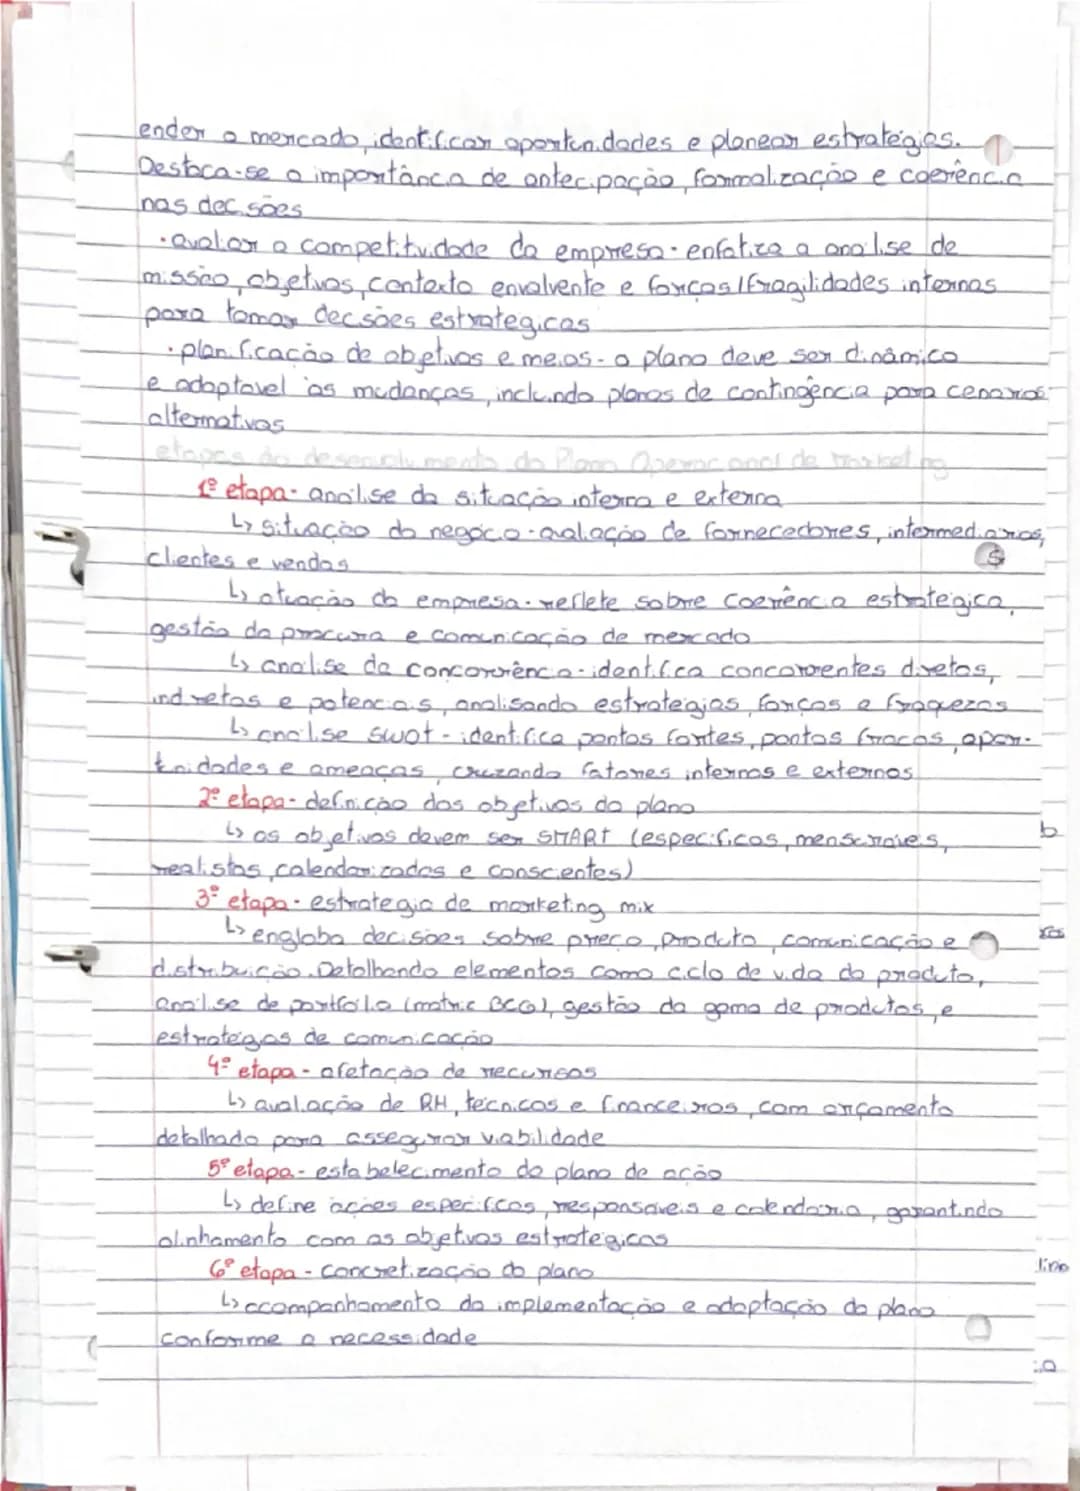 ender o mercado, identificar oportunidades e planear estratégias.
Destaca-se a importância de antecipação, formalização e coerência
nas decisões
· avaliar a competitividade da empresa - enfatiza a analise de
missão, objetivos, contexto envolvente e forças/fragilidades internas
para tomar decisões estrategicas
· planificação de objetivos e meios - o plano deve ser dinâmico
e adaptavel às mudanças, incluindo planos de contingência para cenarios
alternativos
etapas do desenvolvimento do Plano Operacional de marketing
1ª etapa - análise da situação interna e externa
↳ situação do negócio - avaliação de fornecedores, intermediarios,
clientes e vendas
↳ atuação da empresa - reflete sobre coerência estrategica,
gestão da procura e comunicação de mercado
↳ analise da concorrência - identifica concorrentes diretos,
indiretos e potenciais, analisando estrategias, forças e fraquezas
↳ analise swot - identifica pontos fortes, pontos fracos, opor-
tunidades e ameaças, cruzando fatores internos e externos
2ª etapa - definição dos objetivos do plano
↳ os objetivos devem ser SMART (especificos, mensuraveis,
realistas, calendarizados e conscientes)
3ª etapa - estrategia de marketing mix
↳ engloba decisões sobre preço, produto, comunicação e
distribuição. Detalhando elementos como ciclo de vida do produto,
analise de portfolio (matriz BCG), gestão da gama de produtos, e
estratégias de comunicação
4ª etapa - afetação de recursos
↳ avaliação de RH, tecnicos e financeiros, com orçamento
detalhado para assegurar viabilidade
5ª etapa - estabelecimento do plano de ação
↳ define ações especificas, responsaveis e calendario, garantindo
alinhamento com os objetivos estrategicos
6ª etapa - concretização do plano
↳ acompanhamento da implementação e adaptação do plano
conforme a necessidade